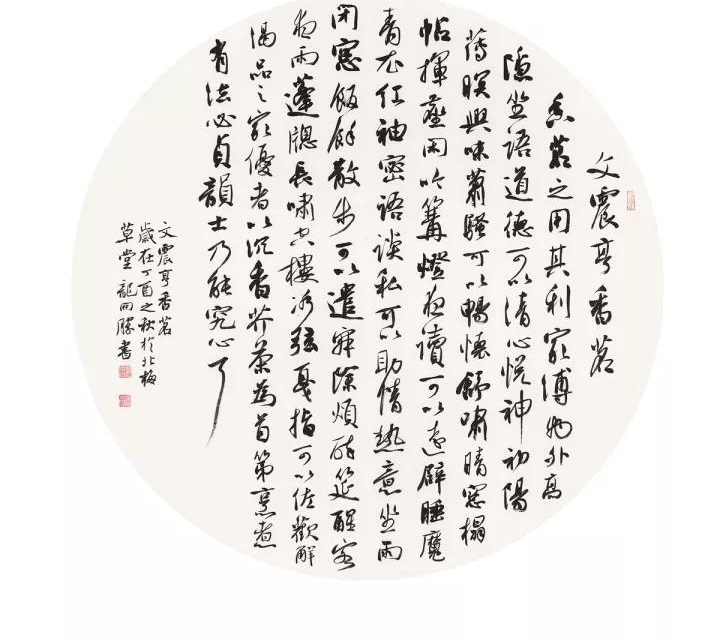 文震亨香茗
香茗之用其利最溥物外高
隱坐語道德可以清心悅神初陽
薄暝興味蕭騷可以暢懷舒嘯晴窓搨
帖揮麈閑吟篝燈夜讀可以遠辟睡魔
青衣紅袖密語談私可以助情熱意坐雨
閉窓飯餘散步可以遣寂除煩醉筵醒客
夜雨蓬牕長嘯空樓冰弦戛指可以佐歡解
渴品之最優者以沉香岕茶為首第烹煮
有法必貞韻士乃能究心耳
文震亨香茗
歲在丁酉之秋於北梅
草堂龍開勝書